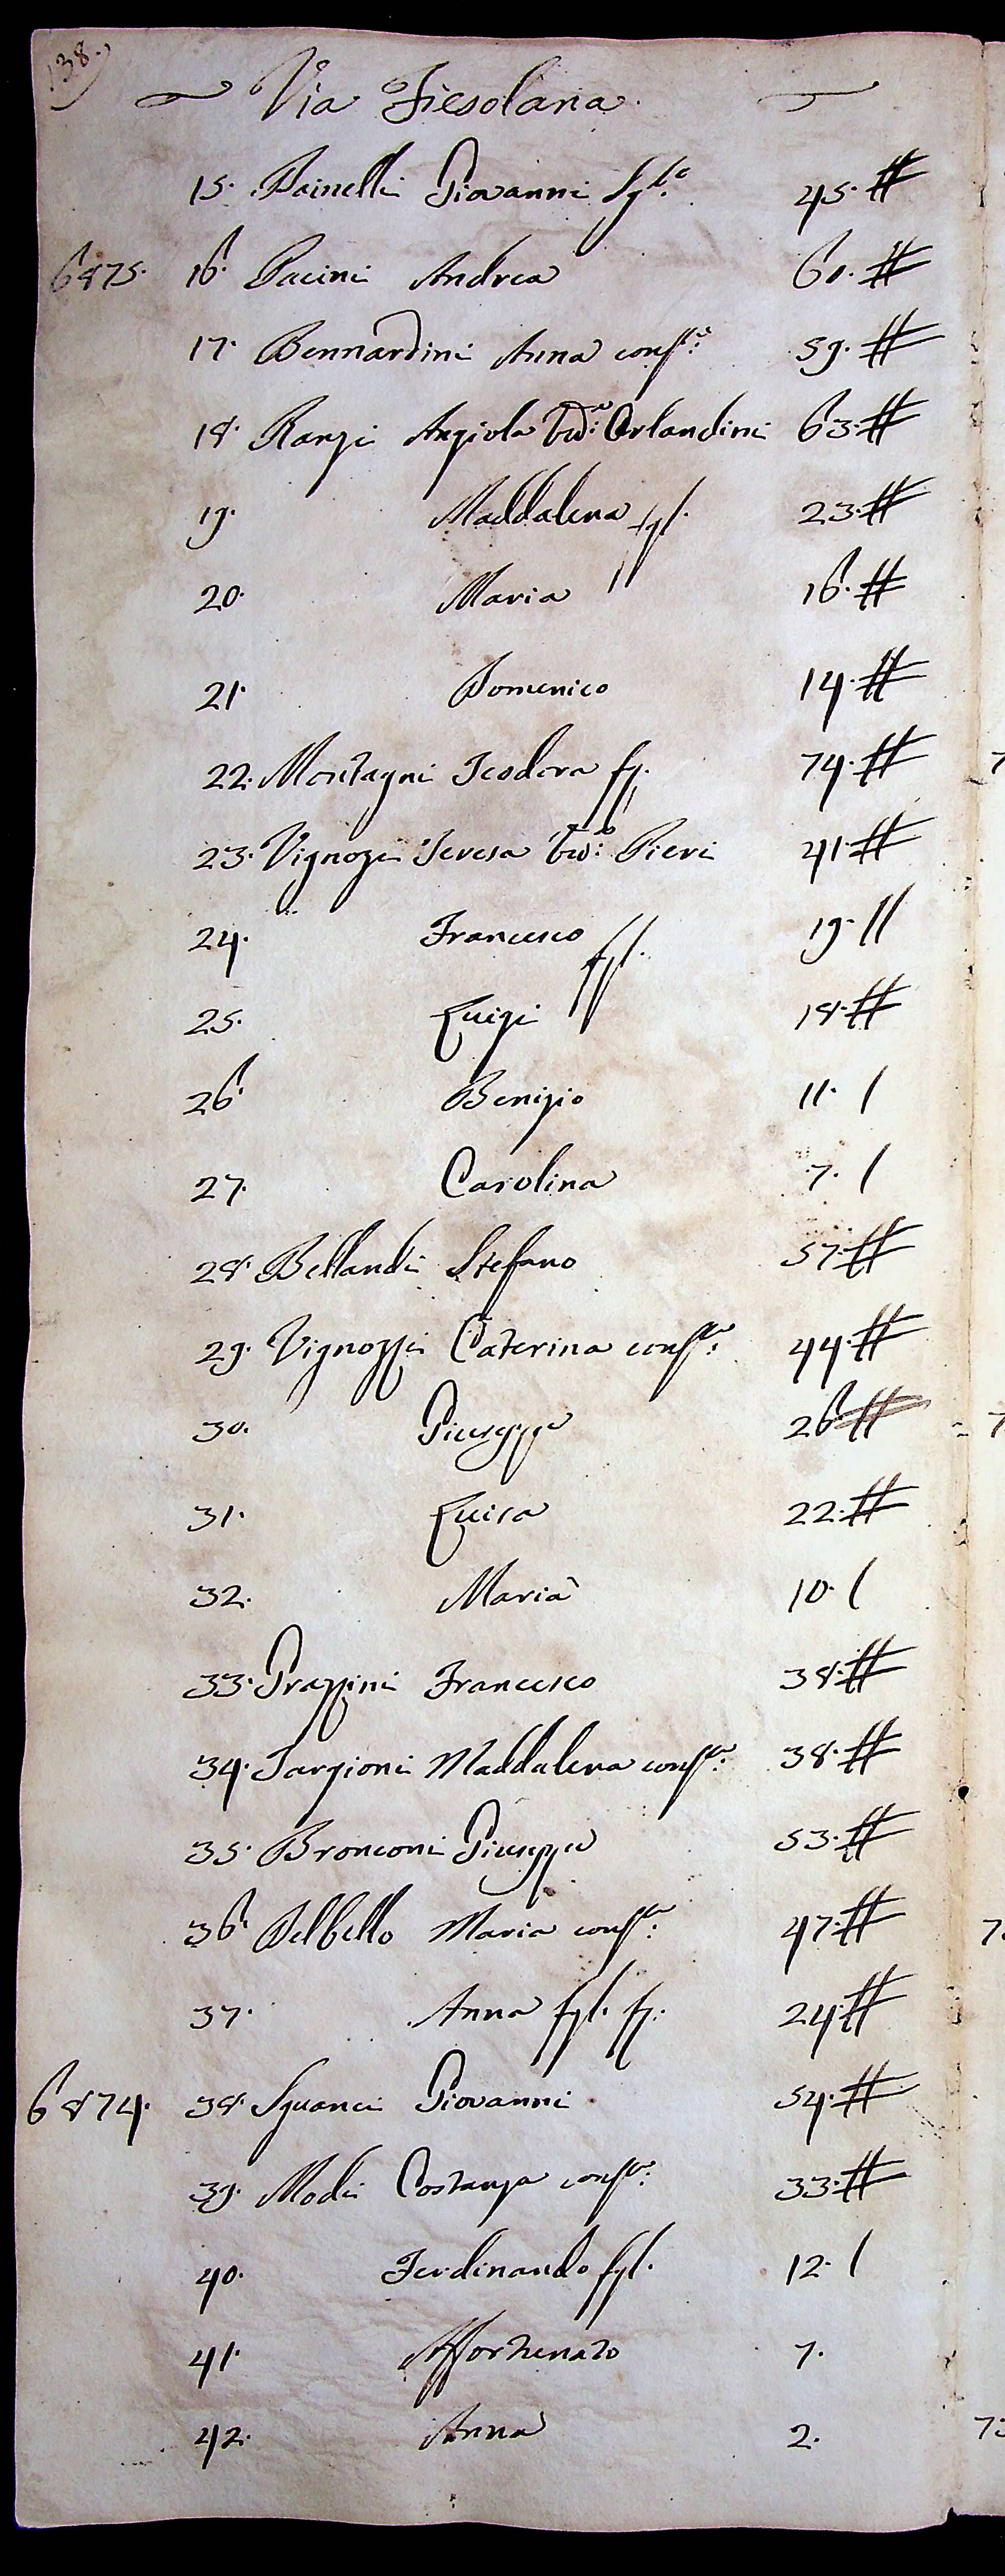 138.
Via Fiesolana.
15. Dainelli Giovanni 45. #
6875. 16. Pacini Andrea 60. #
17. Bennardini Anna conste. 59. #
18. Ranzi Angiola vda. Orlandini 63. #
19. Maddalena figl. 23. #
20. Maria 16. #
21. Domenico 14. #
22. Montagni Teodora f. 74. #
23. Vignozzi Teresa vda. Pieri 41. #
24. Francesco figl. 19. //
25. Luigi 18. #
26. Benigio 11. /
27. Carolina 7. /
28. Bellandi Stefano 57. #
29. Vignozzi Caterina conste. 44. #
30. Giuseppe 26. #
31. Luisa 22. #
32. Maria 10. /
33. Grazzini Francesco 38. #
34. Targioni Maddalena conste. 38. #
35. Bronconi Giuseppe 53. #
36. Delbello Maria conste. 47. #
37. Anna figl. f. 24. #
6874. 38. Sguanci Giovanni 54. #
39. Modi Costanza conste. 33. #
40. Ferdinando figl. 12. /
41. Affortunato 7.
42. Anna 2.